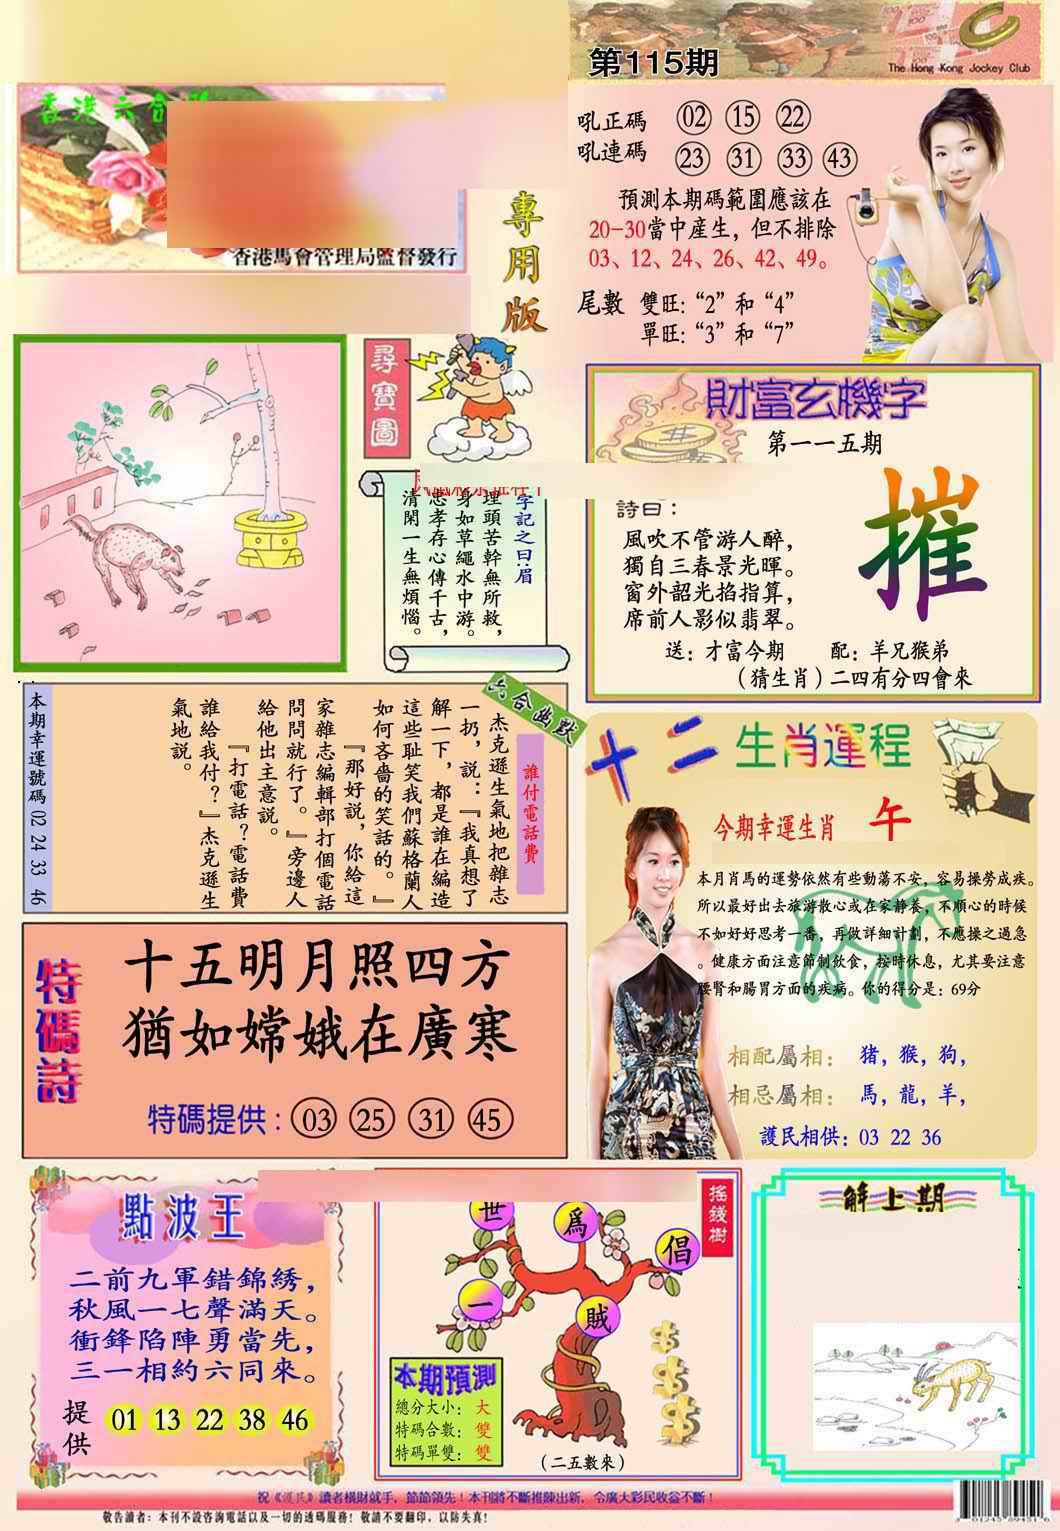 第115期
The Hong Kong Jockey Club
香港六合
香港馬會管理局監督發行
專用版
吼正碼 02 15 22
吼連碼 23 31 33 43
預測本期碼範圍應該在
20-30當中産生，但不排除
03、12、24、26、42、49。
尾數 雙旺:“2”和“4”
單旺:“3”和“7”
尋寶圖
字記之曰:眉
埋頭苦幹無所救，
身如草繩水中游。
忠孝存心傳千古，
清閑一生無煩惱。
財富玄機字
第一一五期
摧
詩曰：
風吹不管游人醉，
獨自三春景光暉。
窗外韶光掐指算，
席前人影似翡翠。
送：才富今期 配：羊兄猴弟
（猜生肖）二四有分四會來
本期幸運號碼 02 24 33 46
六合幽默
誰付電話費
杰克遜生氣地把雜志
一扔，說：『我真想了
解一下，都是誰在編造
這些耻笑我們蘇格蘭人
如何吝嗇的笑話的。』
『那好說，你給這
家雜志編輯部打個電話
問問就行了。』旁邊人
給他出主意說。
『打電話？電話費
誰給我付？』杰克遜生
氣地說。
十二生肖運程
今期幸運生肖 午
本月肖馬的運勢依然有些動蕩不安，容易操勞成疾。
所以最好出去旅游散心或在家静養，不順心的時候
不如好好思考一番，再做詳細計劃，不應操之過急
。健康方面注意節制飲食，按時休息，尤其要注意
腰腎和腸胃方面的疾病。你的得分是：69分
相配屬相： 猪，猴，狗，
相忌屬相： 馬，龍，羊，
護民相供：03 22 36
特碼詩
十五明月照四方
猶如嫦娥在廣寒
特碼提供：03 25 31 45
點波王
二前九軍錯錦綉，
秋風一七聲滿天。
衝鋒陷陣勇當先，
三一相約六同來。
提供 01 13 22 38 46
搖錢樹
世
為
倡
一
賊
本期預測
總分大小：大
特碼合數：雙
特碼單雙：雙
（二五數來）
解上期
祝《護民》讀者橫財就手，節節領先！本刊將不斷推陳出新，令廣大彩民收益不斷！
敬告讀者：本刊不設咨詢電話以及一切的透碼服務！敬請不要翻印，以防失真！